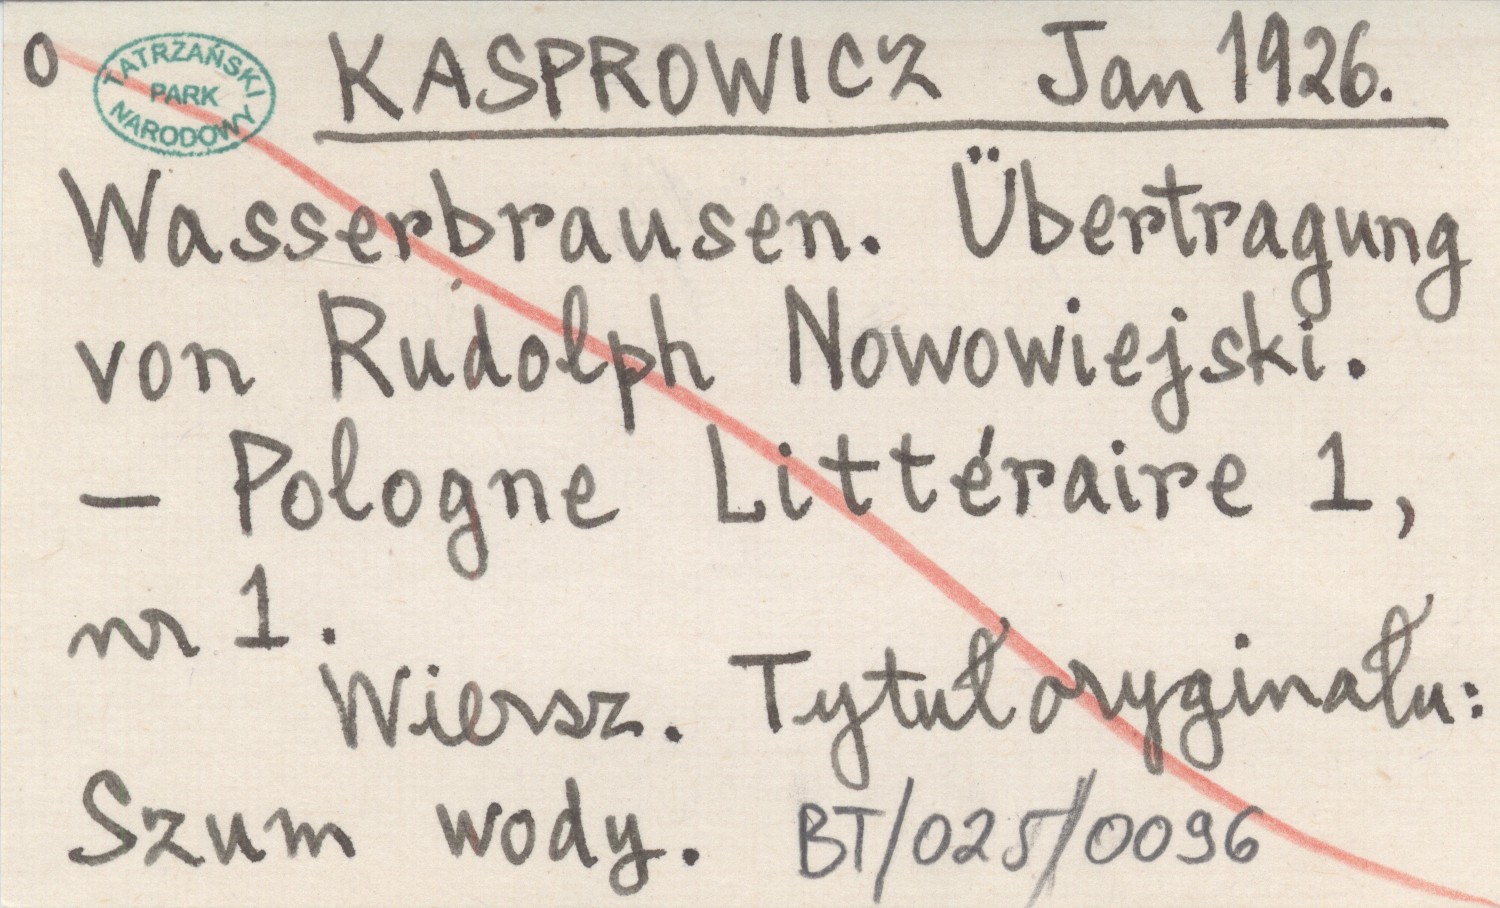 O
TATRZAŃSKI
PARK
NARODOWY
KASPROWICZ Jan 1926.
Wasserbrausen. Übertragung
von Rudolph Nowowiejski.
– Pologne Littéraire 1,
nr 1.
Wiersz. Tytuł oryginału:
Szum wody. BT/025/0096